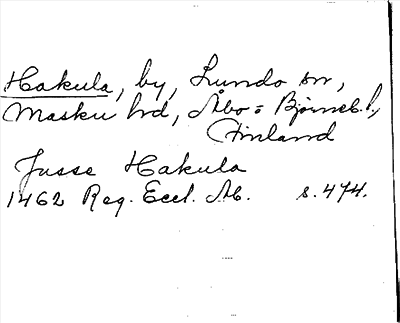 Hakula, by, Lundo sn,
Masku hd, Åbo = Björneb. l.,
Finland
Jusse Hakula
1462 Reg. Eccl. Ab. s. 474.